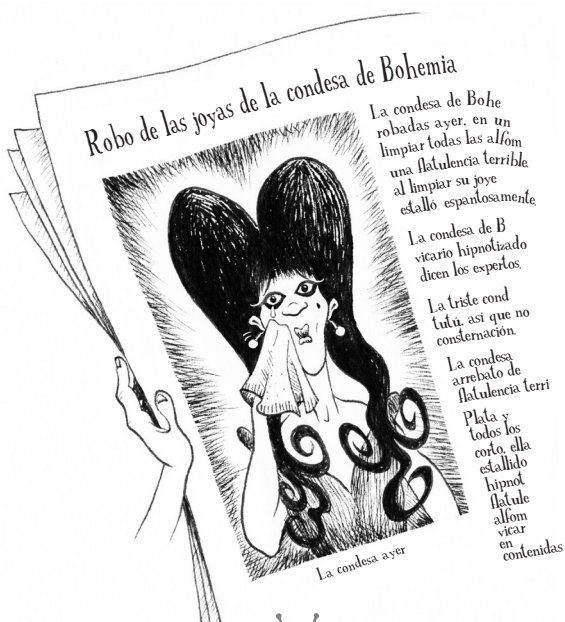 Robo de las joyas de la condesa de Bohemia
La condesa de Bohe
robadas ayer, en un
limpiar todas las alfom
una flatulencia terrible
al limpiar su joye
estalló espantosamente,
La condesa de B
vicario hipnotizado
dicen los expertos.
La triste cond
tutú, así que no
consternación.
La condesa
arrebato de
flatulencia terri
Plata y
todos los
corto, ella
estallido
hipnot
flatule
alfom
vicar
en
contenidas
La condesa ayer